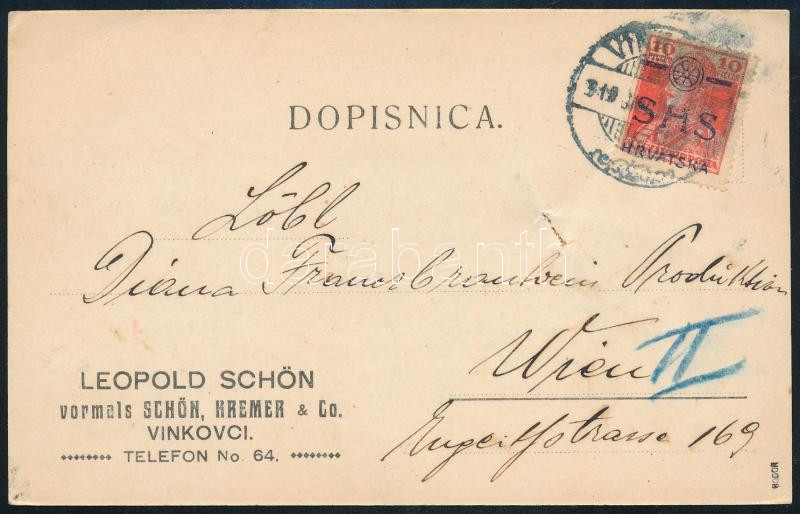 DOPISNICA.
10 10
SHS
HRVATSKA
Löbl
Diana Franzbrantwein Produktion
Wien II
169
LEOPOLD SCHÖN
vormals SCHÖN, KREMER & Co.
VINKOVCI.
TELEFON No. 64.
darabanth
BODOR